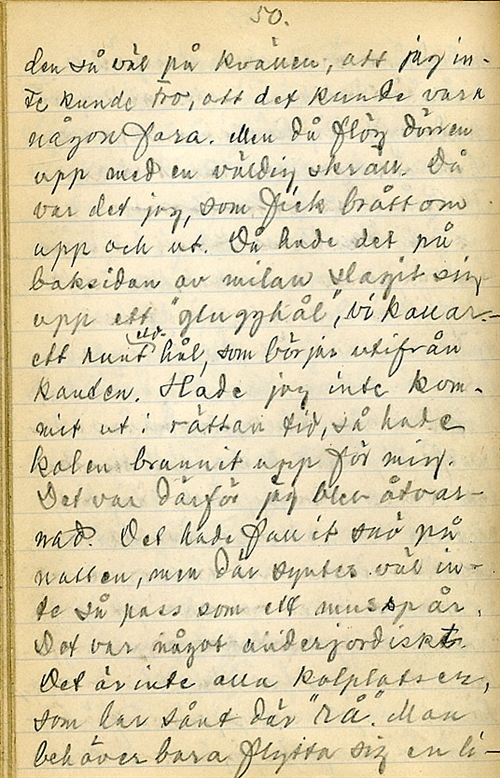 50.
den så väl på kvällen, att jag in-
te kunde tro, att det kunde vara
någon fara. Men då flög dörren
upp med en väldig skräll. Då
var det jag, som fick bråttom
upp och ut. Då hade det på
baksidan av milan slagit sig
upp ett "glugghål", vi kallar.-
ett runt eld- hål, som börjar utifrån
kanten. Hade jag inte kom-
mit ut i rättan tid, så hade
kolen brunnit upp för mig.
Det var därför jag blev åtvar-
nad. Det hade fallit snö på
natten, men där syntes väl in-
te så pass som ett musspår.
Det var något underjordiskt.
Det är inte alla kolplatser,
som har sånt där "rå". Man
behöver bara flytta sig en li-